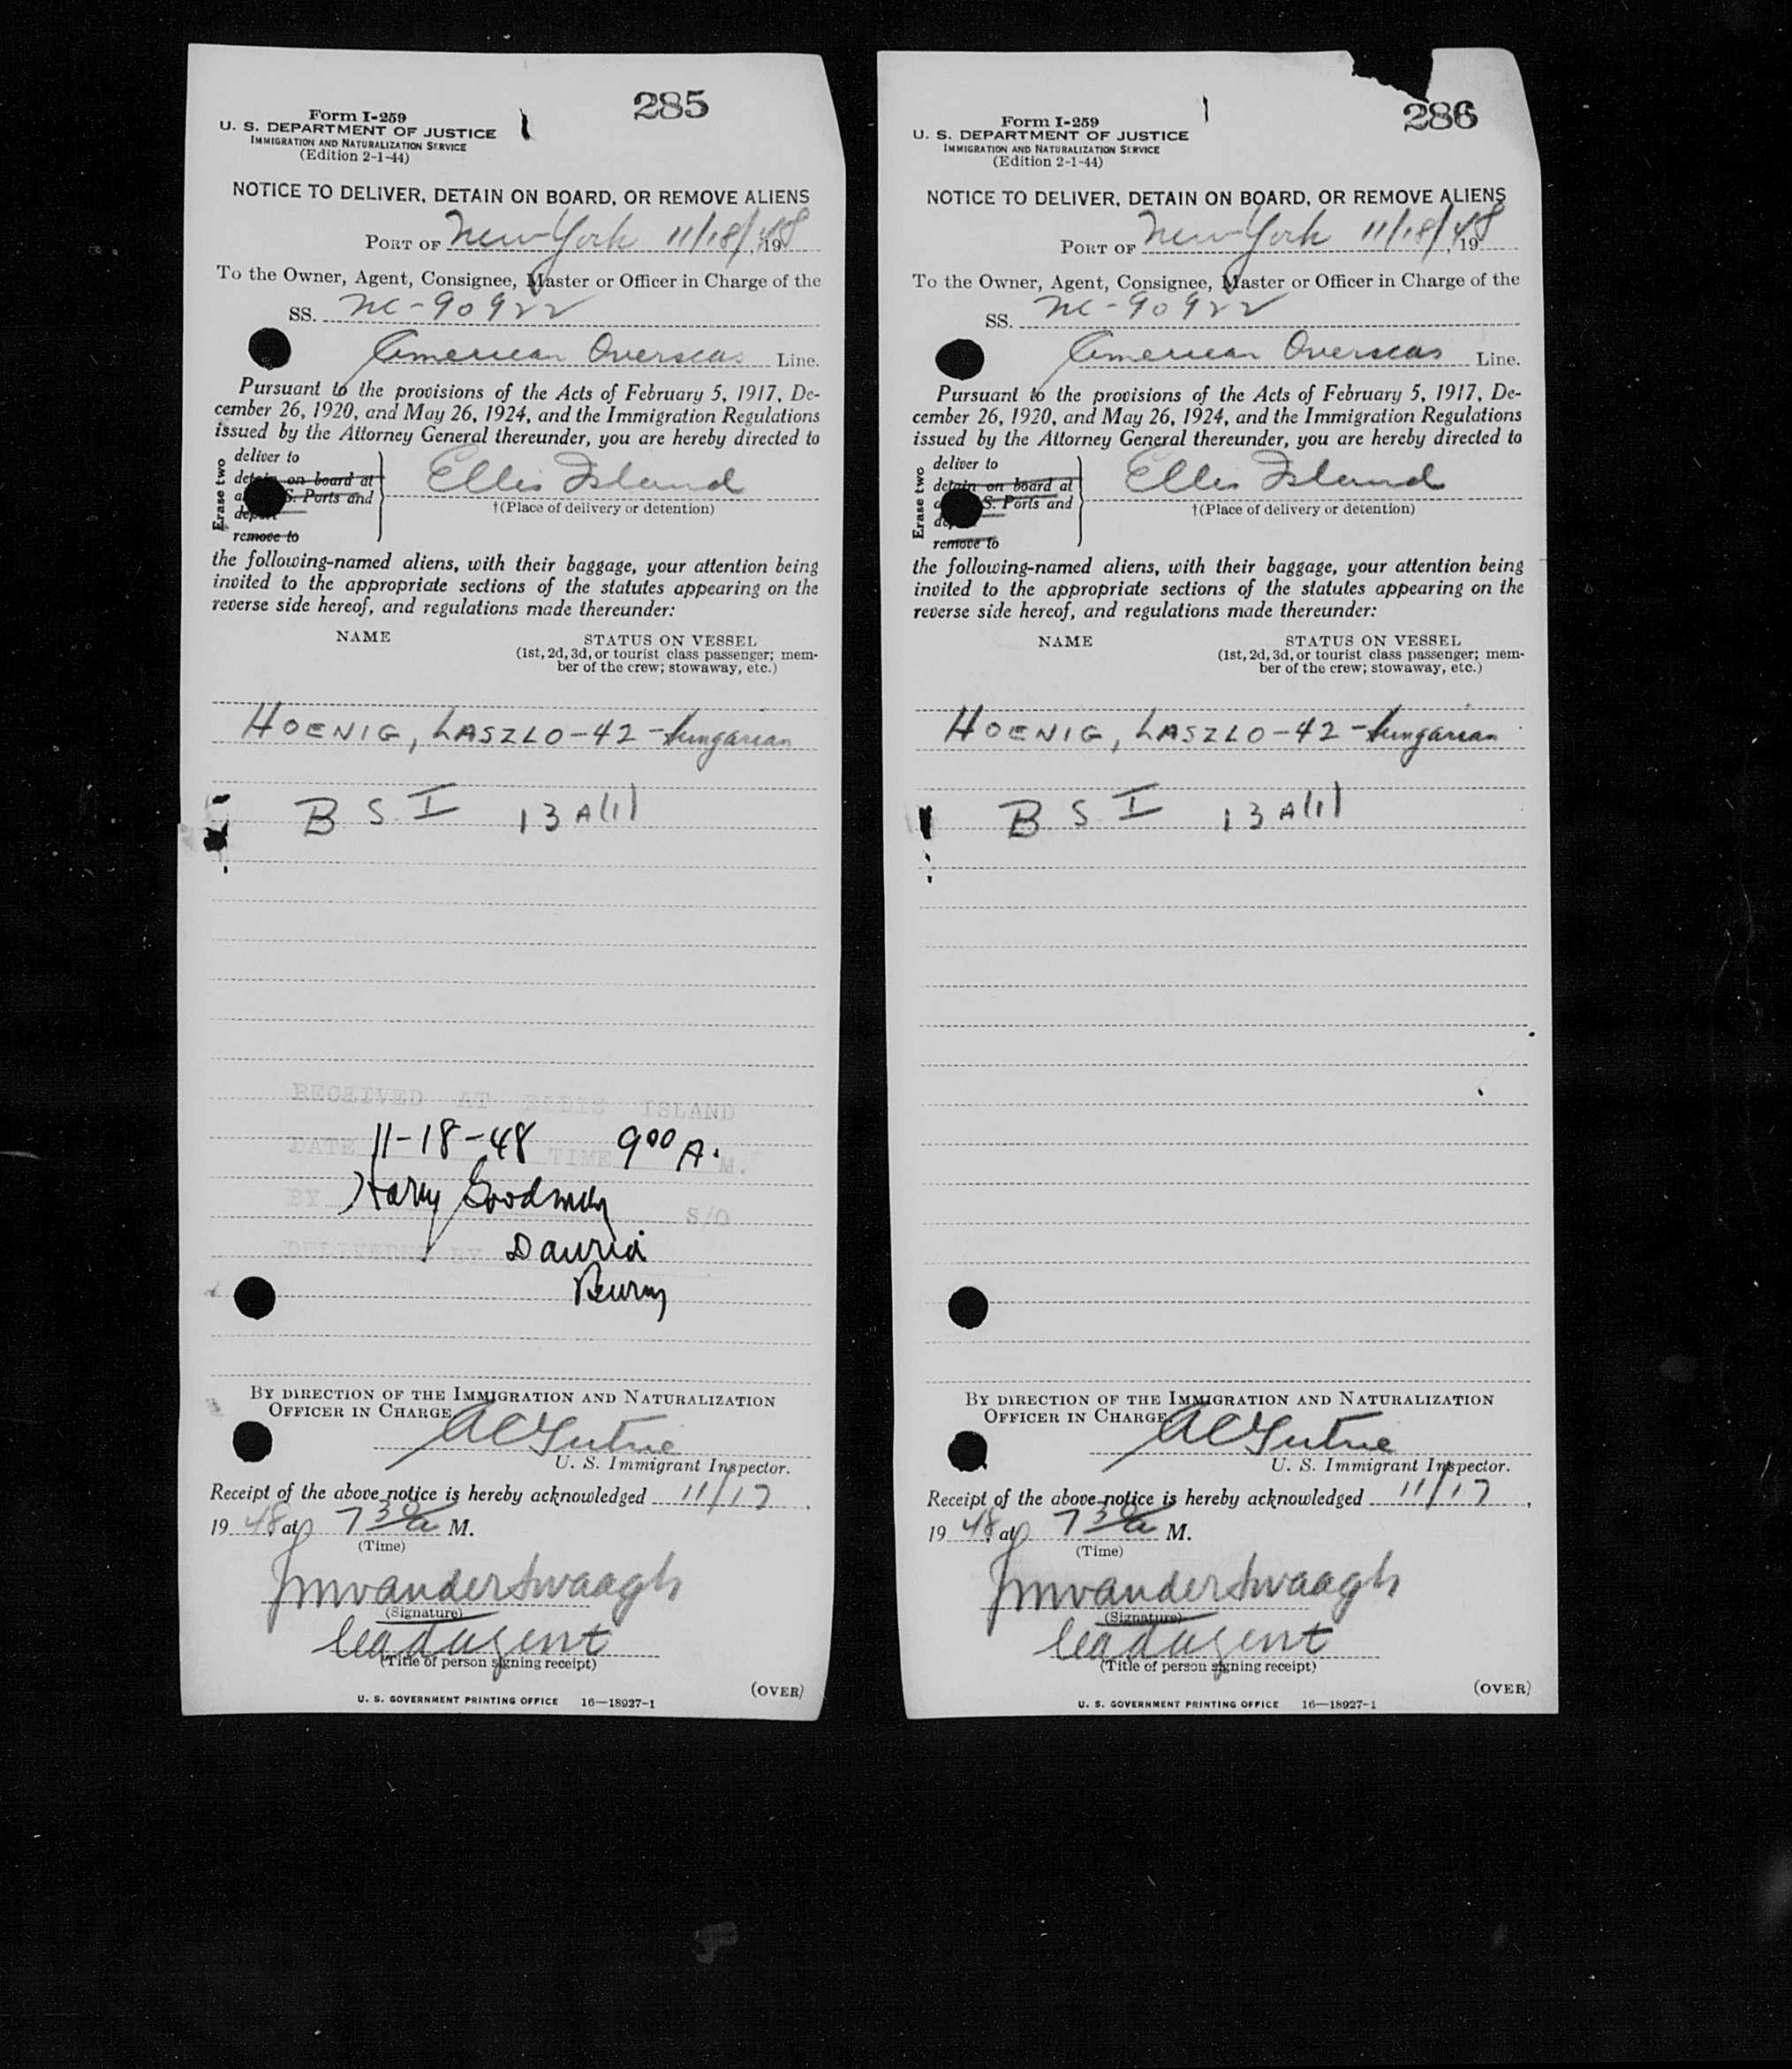 285
Form I-259
U. S. DEPARTMENT OF JUSTICE
IMMIGRATION AND NATURALIZATION SERVICE
(Edition 2-1-44)
NOTICE TO DELIVER, DETAIN ON BOARD, OR REMOVE ALIENS
PORT OF New York 11/18/48, 19
To the Owner, Agent, Consignee, Master or Officer in Charge of the
SS. NC-90922
American Overseas Line.
Pursuant to the provisions of the Acts of February 5, 1917, De-
cember 26, 1920, and May 26, 1924, and the Immigration Regulations
issued by the Attorney General thereunder, you are hereby directed to
Erase two
deliver to
detain on board at
S. Ports and
remove to
Ellis Island
†(Place of delivery or detention)
the following-named aliens, with their baggage, your attention being
invited to the appropriate sections of the statutes appearing on the
reverse side hereof, and regulations made thereunder:
NAME STATUS ON VESSEL
(1st, 2d, 3d, or tourist class passenger; mem-
ber of the crew; stowaway, etc.)
HOENIG, LASZLO-42-Hungarian
B S I 13 A(1)
RECEIVED AT ELLIS ISLAND
DATE 11-18-48 TIME 900 A. M.
BY Harry S/O
DELIVERED BY
By DIRECTION OF THE IMMIGRATION AND NATURALIZATION
OFFICER IN CHARGE
U. S. Immigrant Inspector.
Receipt of the above notice is hereby acknowledged 11/17,
19 48 at 7 30 a M.
(Time)
(Signature)
lead agent
(Title of person signing receipt)
(OVER)
U. S. GOVERNMENT PRINTING OFFICE 16—18927-1
286
Form I-259
U. S. DEPARTMENT OF JUSTICE
IMMIGRATION AND NATURALIZATION SERVICE
(Edition 2-1-44)
NOTICE TO DELIVER, DETAIN ON BOARD, OR REMOVE ALIENS
PORT OF New York 11/18/48, 19
To the Owner, Agent, Consignee, Master or Officer in Charge of the
SS. NC-90922
American Overseas Line.
Pursuant to the provisions of the Acts of February 5, 1917, De-
cember 26, 1920, and May 26, 1924, and the Immigration Regulations
issued by the Attorney General thereunder, you are hereby directed to
Erase two
deliver to
detain on board at
S. Ports and
remove to
Ellis Island
†(Place of delivery or detention)
the following-named aliens, with their baggage, your attention being
invited to the appropriate sections of the statutes appearing on the
reverse side hereof, and regulations made thereunder:
NAME STATUS ON VESSEL
(1st, 2d, 3d, or tourist class passenger; mem-
ber of the crew; stowaway, etc.)
HOENIG, LASZLO-42-Hungarian
B S I 13 A(1)
By DIRECTION OF THE IMMIGRATION AND NATURALIZATION
OFFICER IN CHARGE
U. S. Immigrant Inspector.
Receipt of the above notice is hereby acknowledged 11/17,
19 48, at 7 30 a M.
(Time)
(Signature)
lead agent
(Title of person signing receipt)
(OVER)
U. S. GOVERNMENT PRINTING OFFICE 16—18927-1